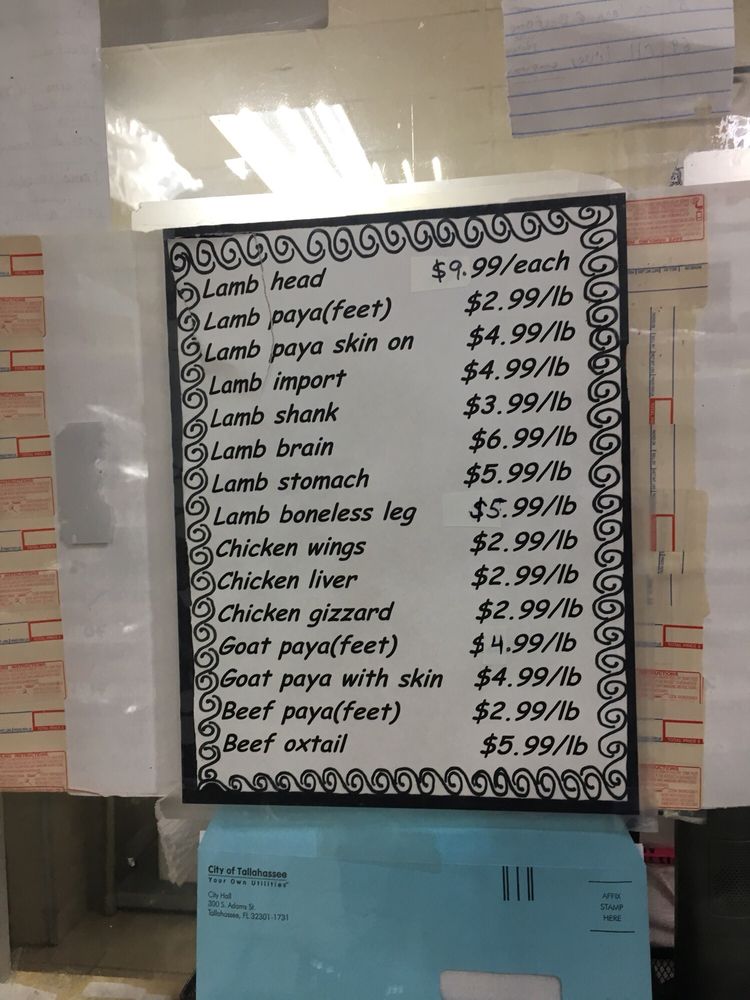 Lamb head $9.99/each
Lamb paya(feet) $2.99/lb
Lamb paya skin on $4.99/lb
Lamb import $4.99/lb
Lamb shank $3.99/lb
Lamb brain $6.99/lb
Lamb stomach $5.99/lb
Lamb boneless leg $5.99/lb
Chicken wings $2.99/lb
Chicken liver $2.99/lb
Chicken gizzard $2.99/lb
Goat paya(feet) $4.99/lb
Goat paya with skin $4.99/lb
Beef paya(feet) $2.99/lb
Beef oxtail $5.99/lb
City of Tallahassee
Your Own Utilities
City Hall
300 S. Adams St.
Tallahassee, FL 32301-1731
AFFIX
STAMP
HERE